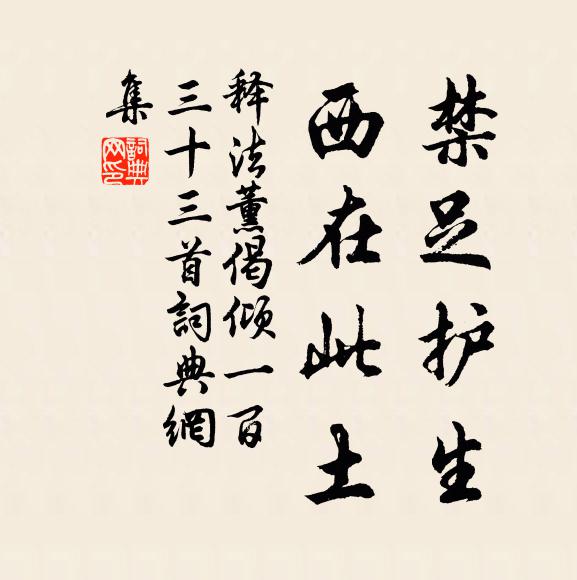 禁足护生
西在此土
释法薰偈倾一百
三十三首詞典網
集
詞典网印